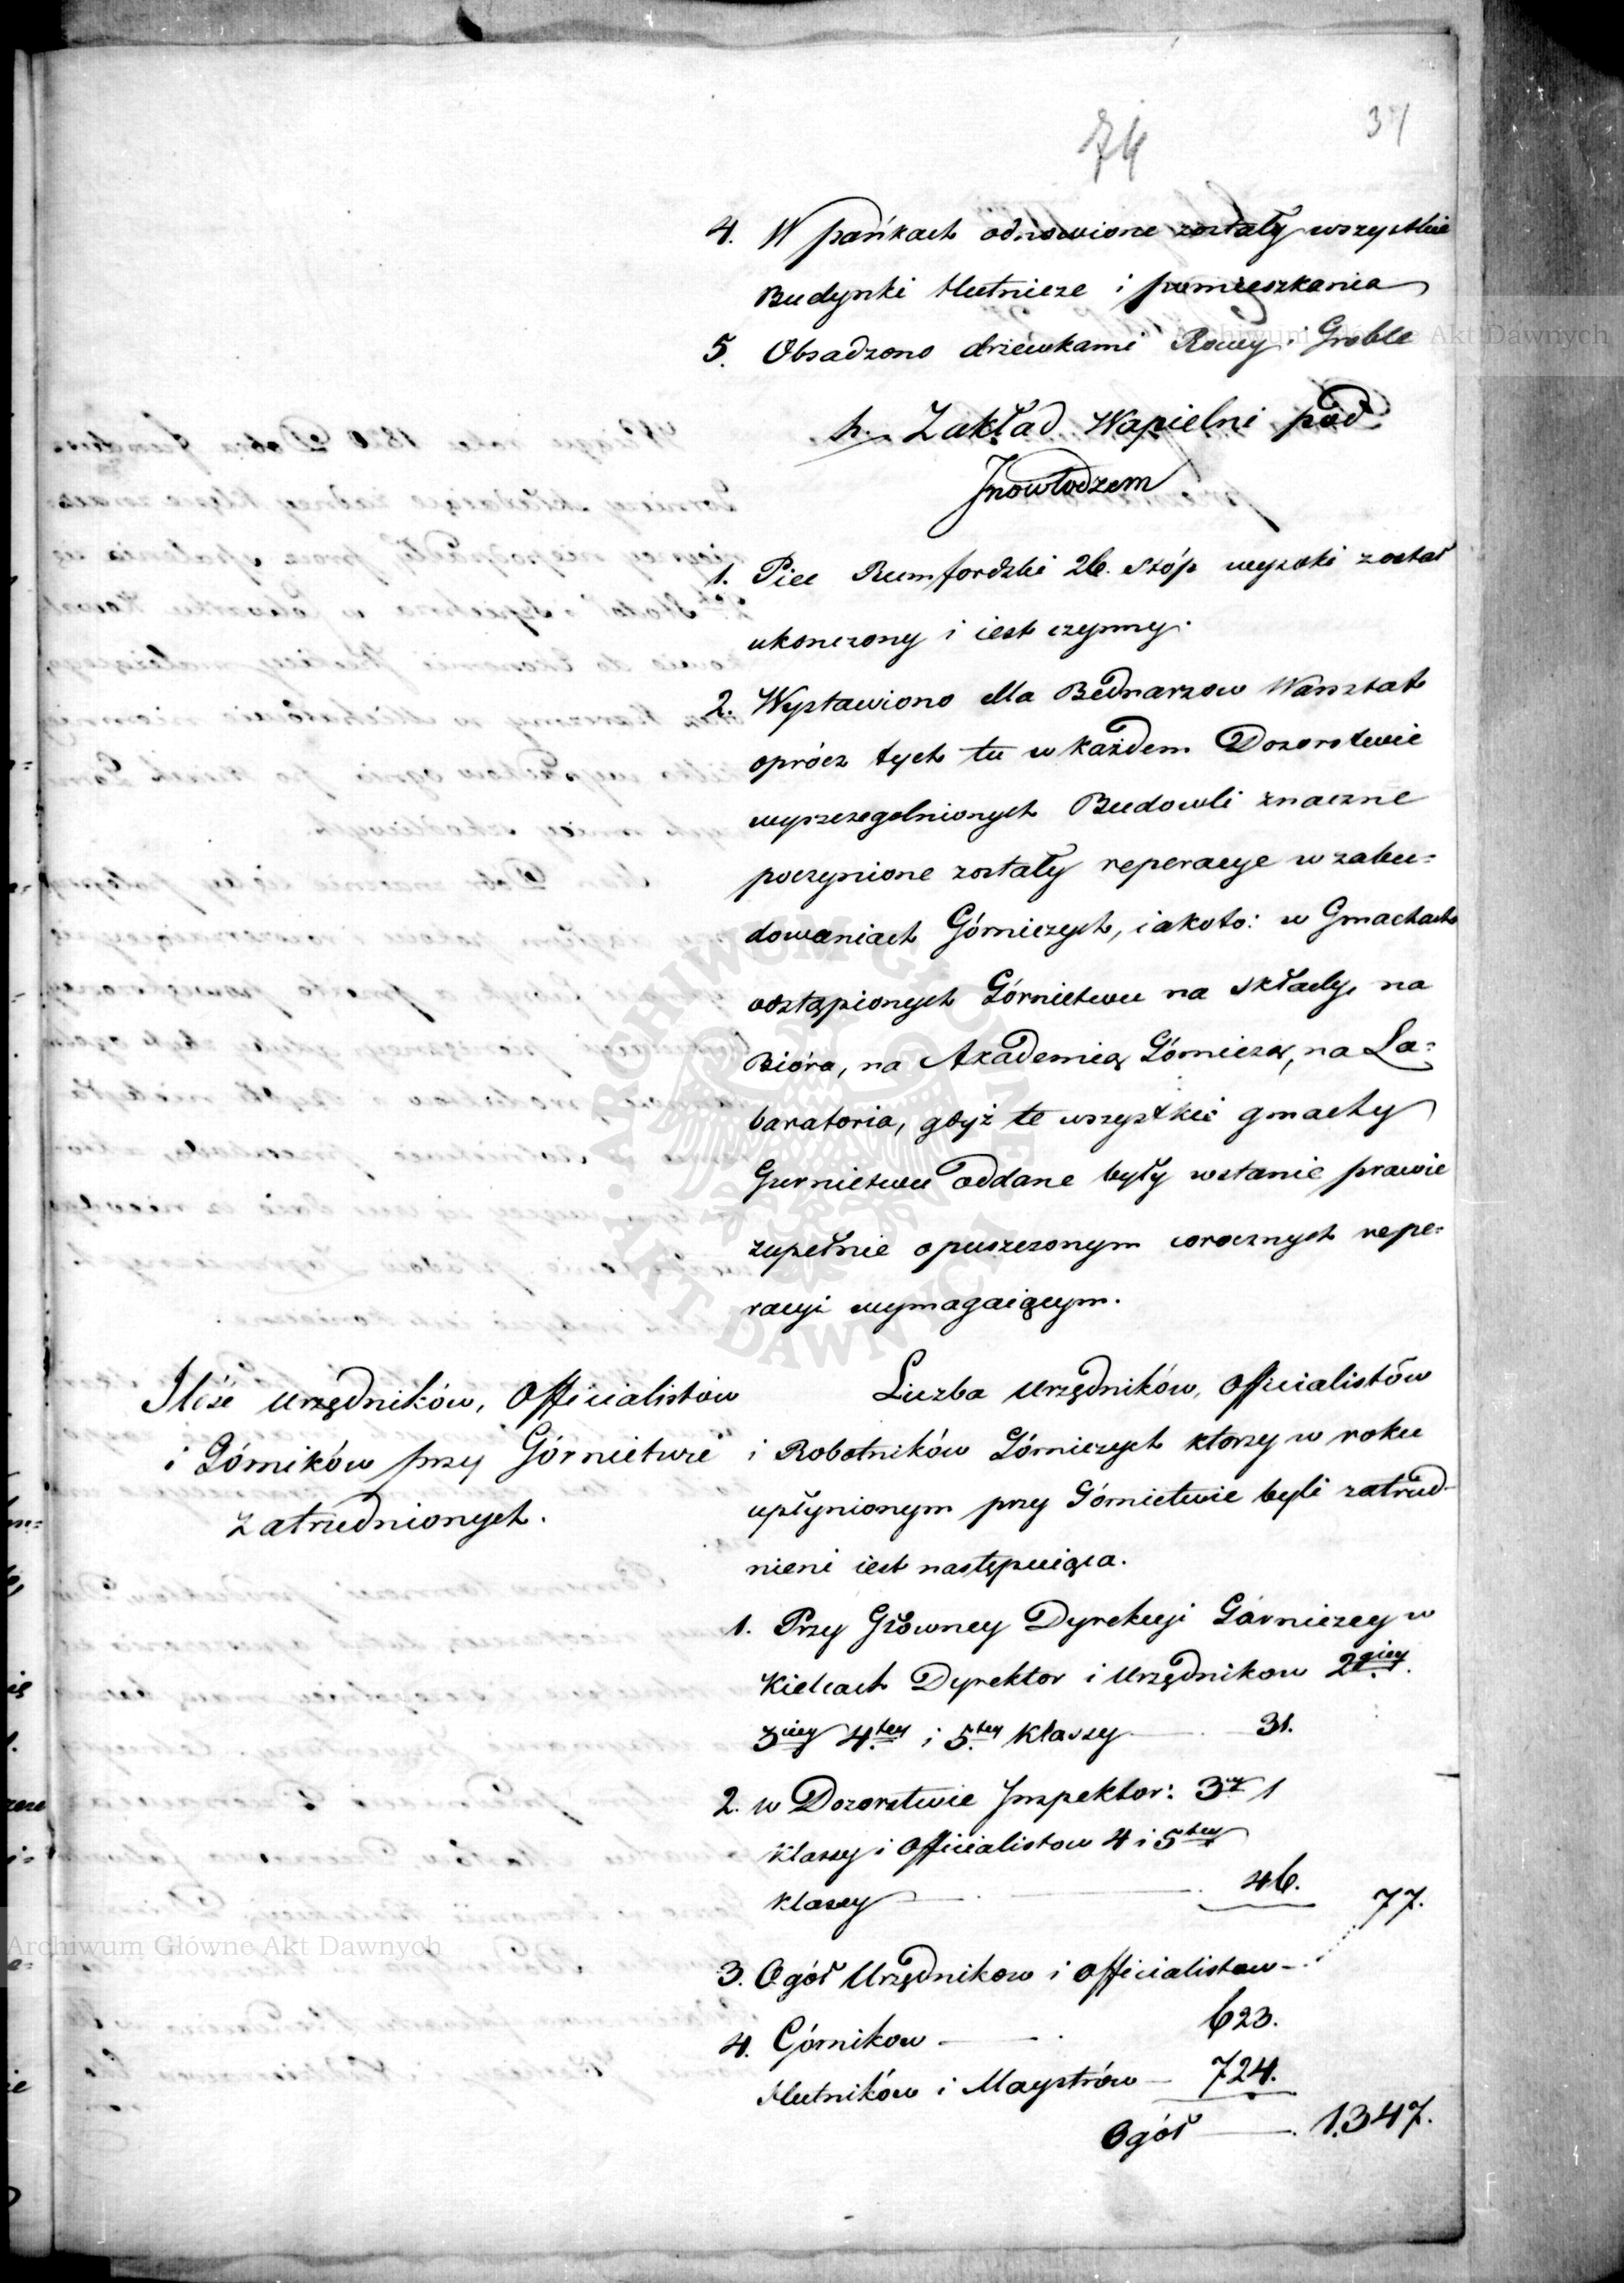 74
37
4. W pańkach odnowione zostały wszystkie
Budynki Hutnicze i pomieszkania
5. Obsadzono drzewkami Rowy i Groble
h. Zakład Wapielni pod
Jnowłodzem
1. Piec Rumfordzki 26. stóp wysoki został
ukonczony i iest czynny.
2. Wystawiono dla Bednarzow Warsztat
oprócz tych tu w każdem Dozorstwie
wyszczegolnionych Budowli znaczne
poczynione zostały reperacye w zabu=
dowaniach Górniczych, iakoto: w Gmachach
odstąpionych Górnictwu na składy, na
Bióra, na Akademią Górniczą, na La=
baratoria, gdyż te wszystkie gmachy
Gurnictwu oddane były wstanie prawie
zupełnie opuszczonym corocznych repe=
racyi wymagaiącym.
Ilość urzędników, Officialistów
i Górników przy Górnictwie
zatrudnionych.
Liczba urzędników, Officialistów
i Robotników Górniczych ktorzy w roku
upłynionym przy Górnictwie byli zatrud-
nieni iest następuiąca.
1. Przy Główney Dyrekcyi Górniczey w
Kielcach Dyrektor i Urzędnikow 2giey.
3ciey 4tey i 5tey Klassy 31.
2. w Dozorstwie Jnspektor: 3ey
klassy i Officialistow 4 i 5tey
klassy 46. 77.
3. Ogół Urzędnikow i Officialistow
4. Górnikow 623.
Hutników i Maystrów 724.
Ogół 1.347.
Archiwum Główne Akt Dawnych
Archiwum Główne Akt Dawnych
ARCHIWUM GŁÓWNE AKT DAWNYCH